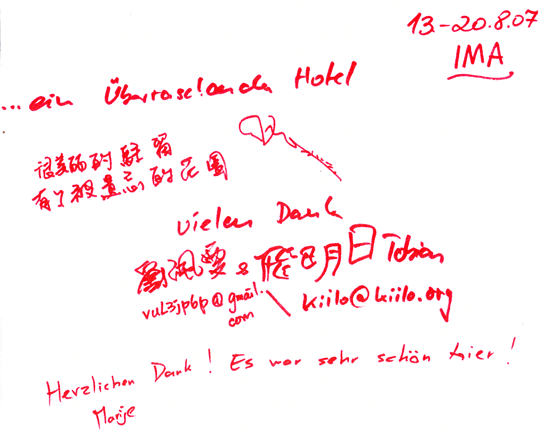 13.-20.8.07
IMA
...ein Überraschendes Hotel
很美麗的駐留
有了被遺忘的花園
vielen Dank
劉 & 月日 Tobias
vul3jp6p@gmail.com
kiilo@kiilo.org
Herzlichen Dank! Es war sehr schön hier!
Marije